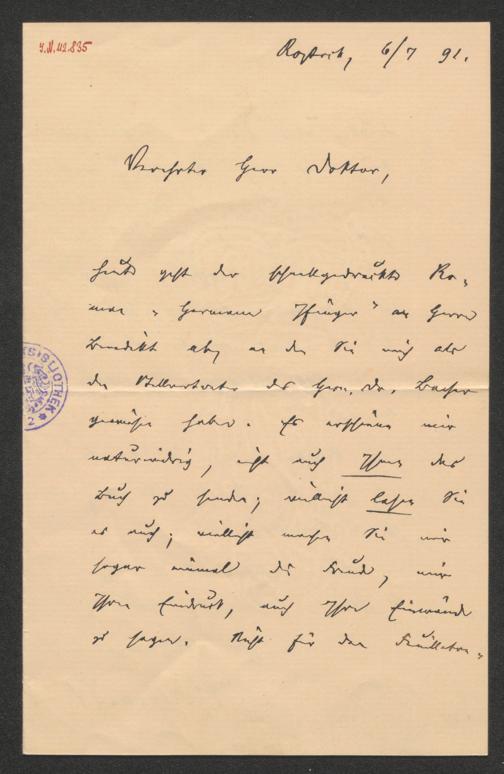 I.N. 42.835
Rostock, 6/7 91.
Verehrter Herr Doktor,
heute geht der schnellgedruckte Ro-
man „Hermann Ifinger“ an Herrn
Benedikt ab, an den Sie mich als
den Stellvertreter des Herrn Dr. Bacher
gewiesen haben. Es erschiene mir
naturwidrig, nicht auch Ihnen das
Buch zu senden; vielleicht lesen Sie
es auch; vielleicht machen Sie mir
sogar einmal die Freude, mir
Ihren Eindruck, auch Ihre Einwände
zu sagen. Nicht für den Feuilleton-
BIBLIOTHEK